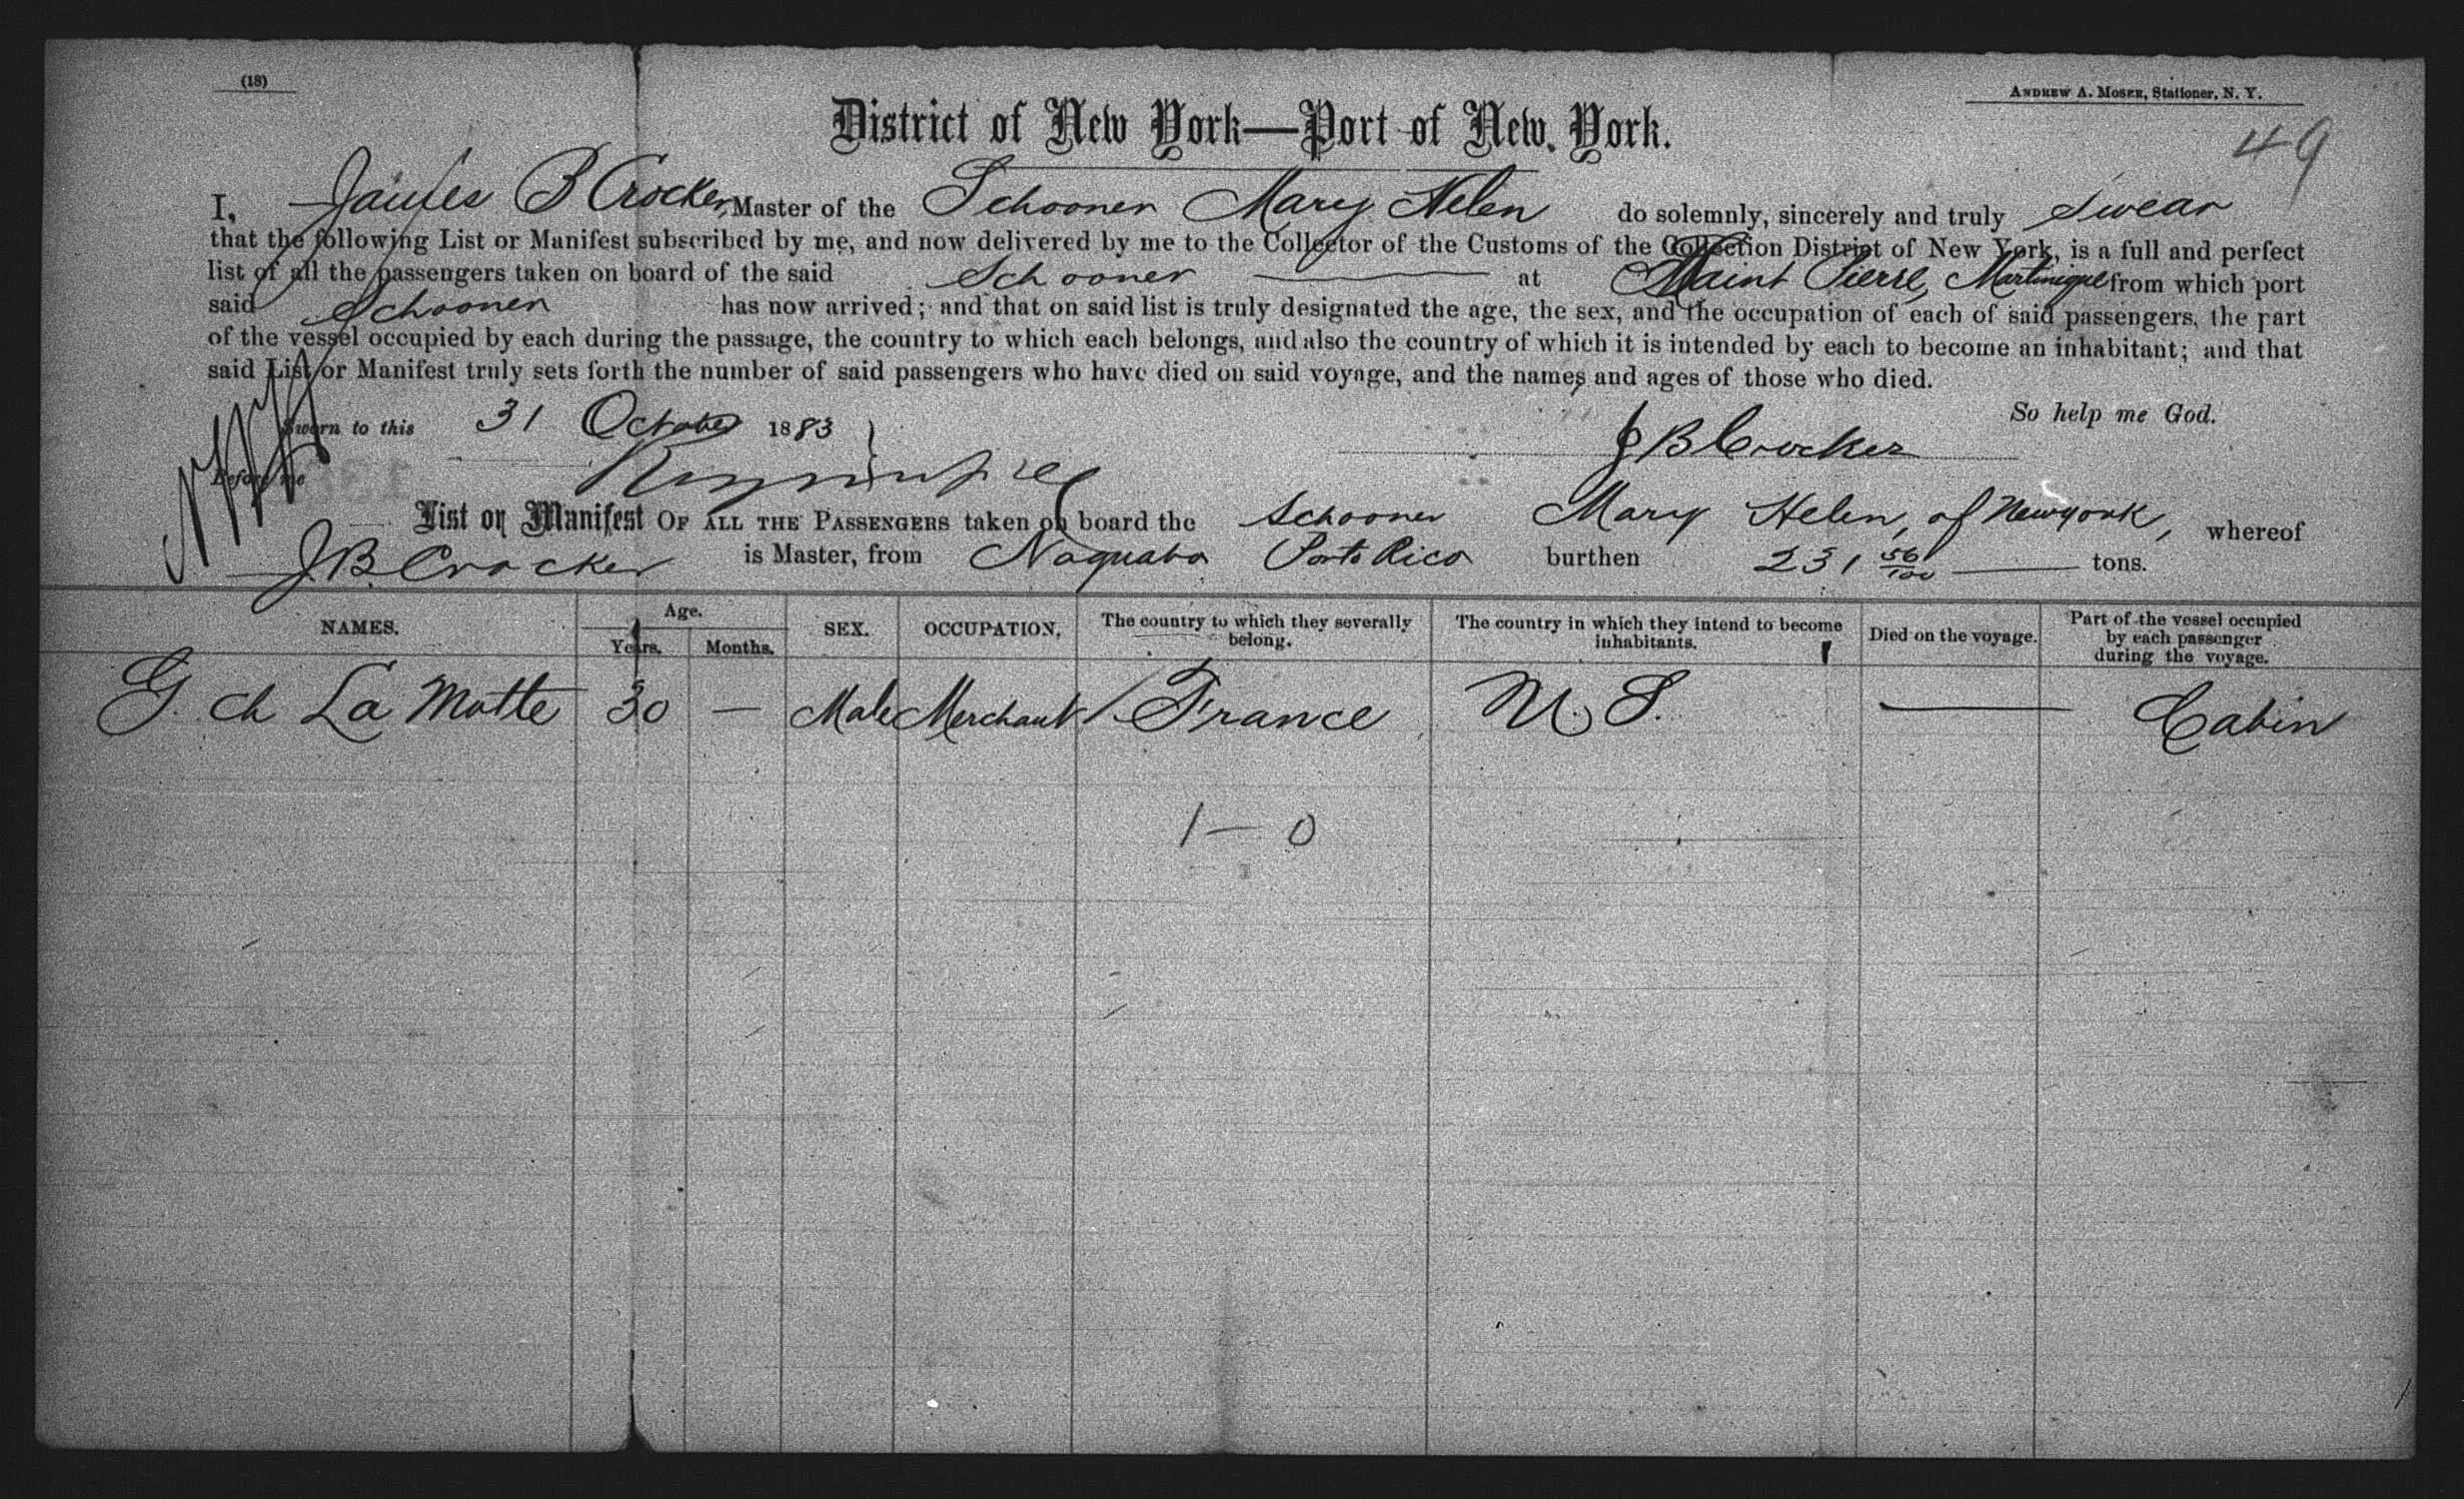 (18)
ANDREW A. MOSER, Stationer, N. Y.
District of New York—Port of New York.
49
I, James B Crocker, Master of the Schooner Mary Helen do solemnly, sincerely and truly Swear
that the following List or Manifest subscribed by me, and now delivered by me to the Collector of the Customs of the Collection District of New York, is a full and perfect
list of all the passengers taken on board of the said Schooner at Saint Pierre, Martinique from which port
said Schooner has now arrived; and that on said list is truly designated the age, the sex, and the occupation of each of said passengers, the part
of the vessel occupied by each during the passage, the country to which each belongs, and also the country of which it is intended by each to become an inhabitant; and that
said List or Manifest truly sets forth the number of said passengers who have died on said voyage, and the names and ages of those who died.
So help me God.
Sworn to this 31 October 1883
J B Crocker
Before me
List or Manifest OF ALL THE PASSENGERS taken on board the Schooner Mary Helen, of Newyork, whereof
J B. Crocker is Master, from Naguabo Porto Rico burthen 231 56/100 tons.
NAMES. Age. Years. Months. SEX. OCCUPATION. The country to which they severally belong. The country in which they intend to become inhabitants. Died on the voyage. Part of the vessel occupied by each passenger during the voyage.
G. ch La Motte 30 — Male Merchant France U. S. — Cabin
1 — 0